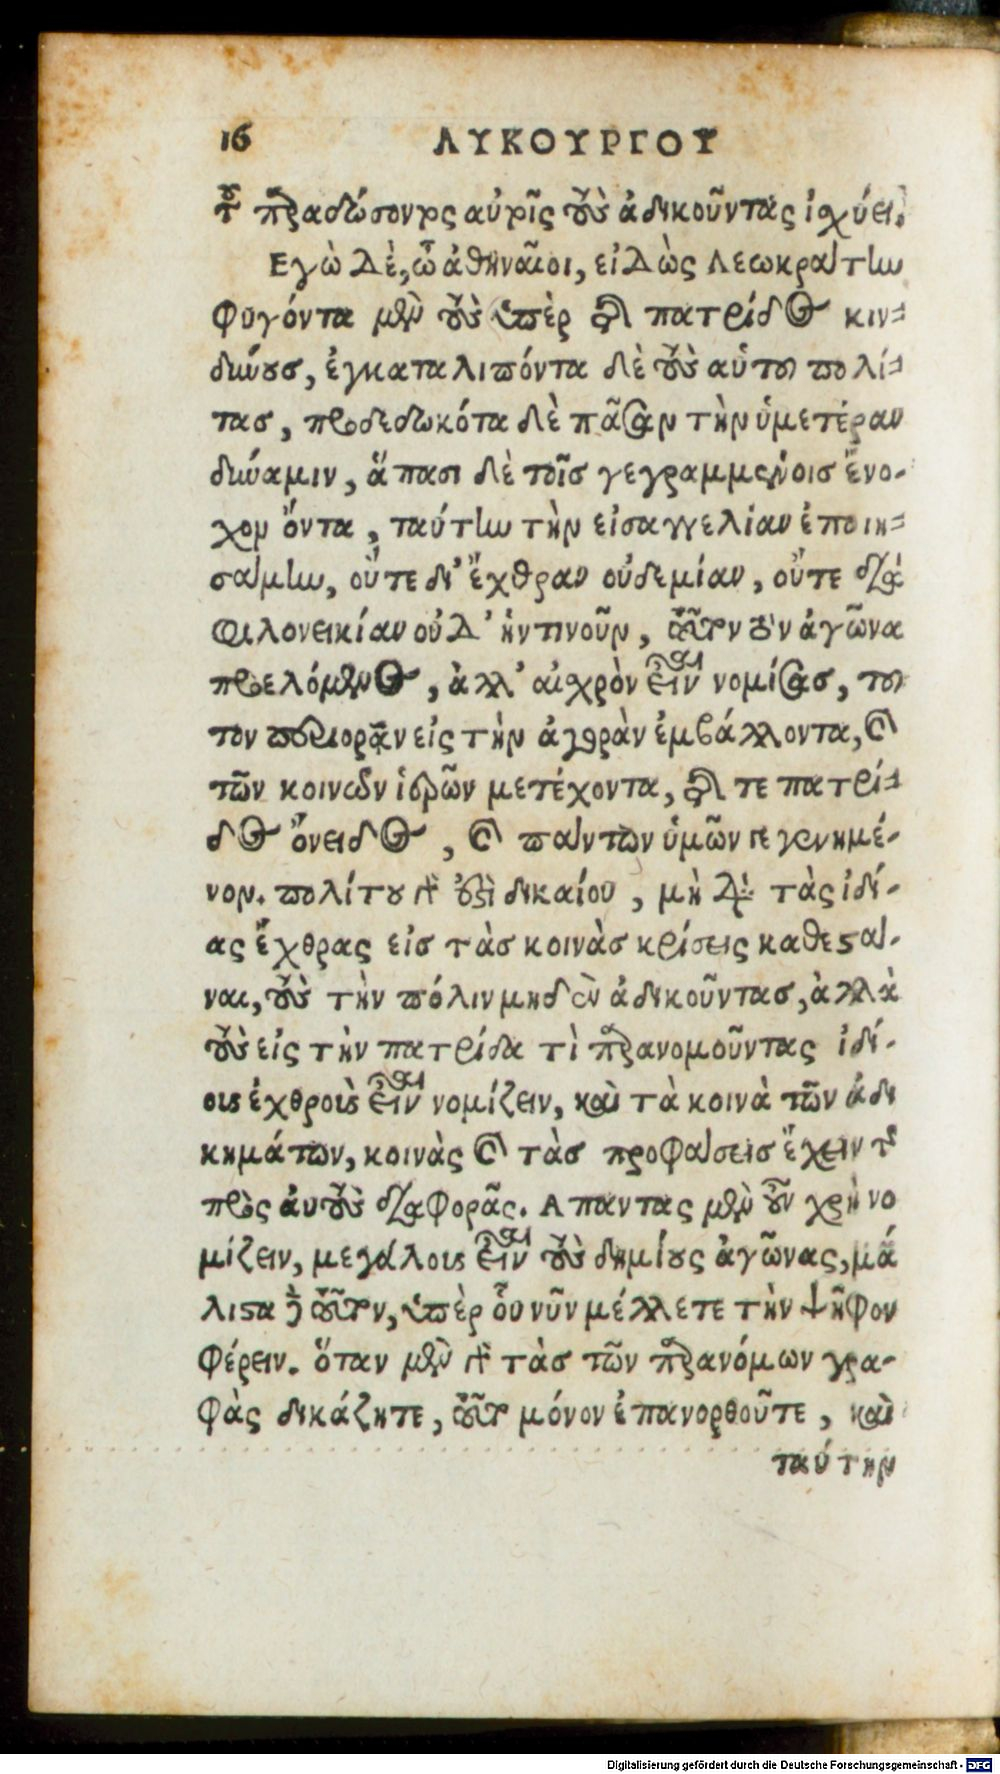 16 ΛΥΚΟΥΡΓΟΥ
τοῦ παραδώσοντος αὐτοῖς τοὺς ἀδικοῦντας ἰσχύει.
Εγὼ δὲ, ὦ ἀθηναῖοι, εἰδὼς Λεωκράτην
φυγόντα μὲν τοὺς ὑπὲρ τῆς πατρίδος κιν-
δύνους, ἐγκαταλιπόντα δὲ τοὺς αὑτοῦ πολί-
τας, προδεδωκότα δὲ πᾶσαν τὴν ὑμετέραν
δύναμιν, ἅπασι δὲ τοῖς γεγραμμένοις ἔνο-
χον ὄντα, ταύτην τὴν εἰσαγγελίαν ἐποιη-
σάμην, οὔτε δι' ἔχθραν οὐδεμίαν, οὔτε διὰ
φιλονεικίαν οὐδ' ἡντινοῦν, τοῦτον τὸν ἀγῶνα
προελόμενος, ἀλλ' αἰχρὸν εἶναι νομίσας, τοῦ
τον περιορᾶν εἰς τὴν ἀγορὰν ἐμβάλλοντα, καὶ
τῶν κοινῶν ἱερῶν μετέχοντα, τῆς τε πατρί-
δος ὄνειδος, καὶ πάντων ὑμῶν γεγενημέ-
νον. πολίτου γάρ ἐστι δικαίου, μὴ διὰ τὰς ἰδί-
ας ἔχθρας εἰς τὰς κοινὰς κρίσεις καθεστά-
ναι, τοὺς τὴν πόλιν μηδὲν ἀδικοῦντας, ἀλλὰ
τοὺς εἰς τὴν πατρίδα τὶ παρανομοῦντας ἰδί-
οις ἐχθροὺς εἶναι νομίζειν, καὶ τὰ κοινὰ τῶν ἀδι
κημάτων, κοινὰς καὶ τὰς προφάσεις ἔχειν τῆς
πρὸς αὐτοὺς διαφορᾶς. Απαντας μὲν οὖν χρὴ νο
μίζειν, μεγάλους εἶναι τοὺς δημίους ἀγῶνας, μά
λιστα δὲ τοῦτον, ὑπὲρ οὗ νῦν μέλλετε τὴν ψῆφον
φέρειν. ὅταν μὲν γὰρ τὰς τῶν παρανόμων γρα-
φὰς δικάζητε, τοῦτο μόνον ἐπανορθοῦτε, καὶ
ταύτην
Digitalisierung gefördert durch die Deutsche Forschungsgemeinschaft - DFG